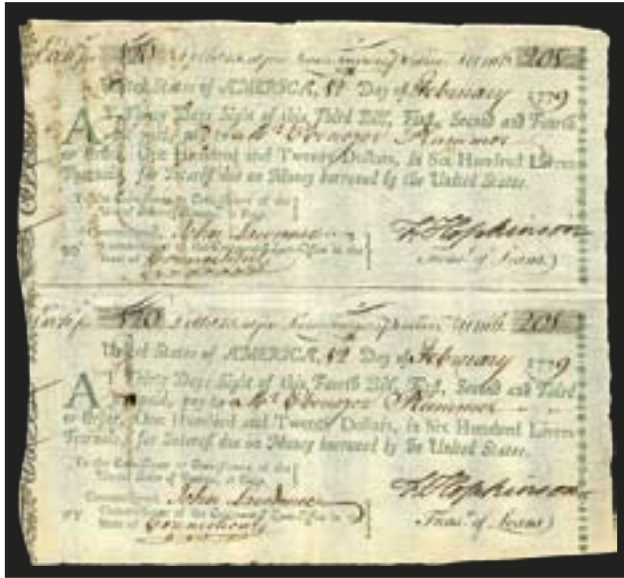 120 208
United States of AMERICA, 1st Day of February 1779
AT Thirty Days Sight of this Third Bill, First, Second and Fourth
not paid, pay to Mr. Ebenezer Plummer
or Order, One Hundred and Twenty Dollars, in Six Hundred Livres
Tournois, for Interest due on Money borrowed by the United States.
To the Commissioner or Commissioners of the
United States of America, at Paris.
Countersigned, John Lawrence F Hopkinson
Commissioner of the Continental Loan-Office in the
State of Connecticut Treasr. of Loans
120 208
United States of AMERICA, 1st Day of February 1779
AT Thirty Days Sight of this Fourth Bill, First, Second and Third
not paid, pay to Mr. Ebenezer Plummer
or Order, One Hundred and Twenty Dollars, in Six Hundred Livres
Tournois, for Interest due on Money borrowed by the United States.
To the Commissioner or Commissioners of the
United States of America, at Paris.
Countersigned, John Lawrence F Hopkinson
Commissioner of the Continental Loan-Office in the
State of Connecticut Treasr. of Loans